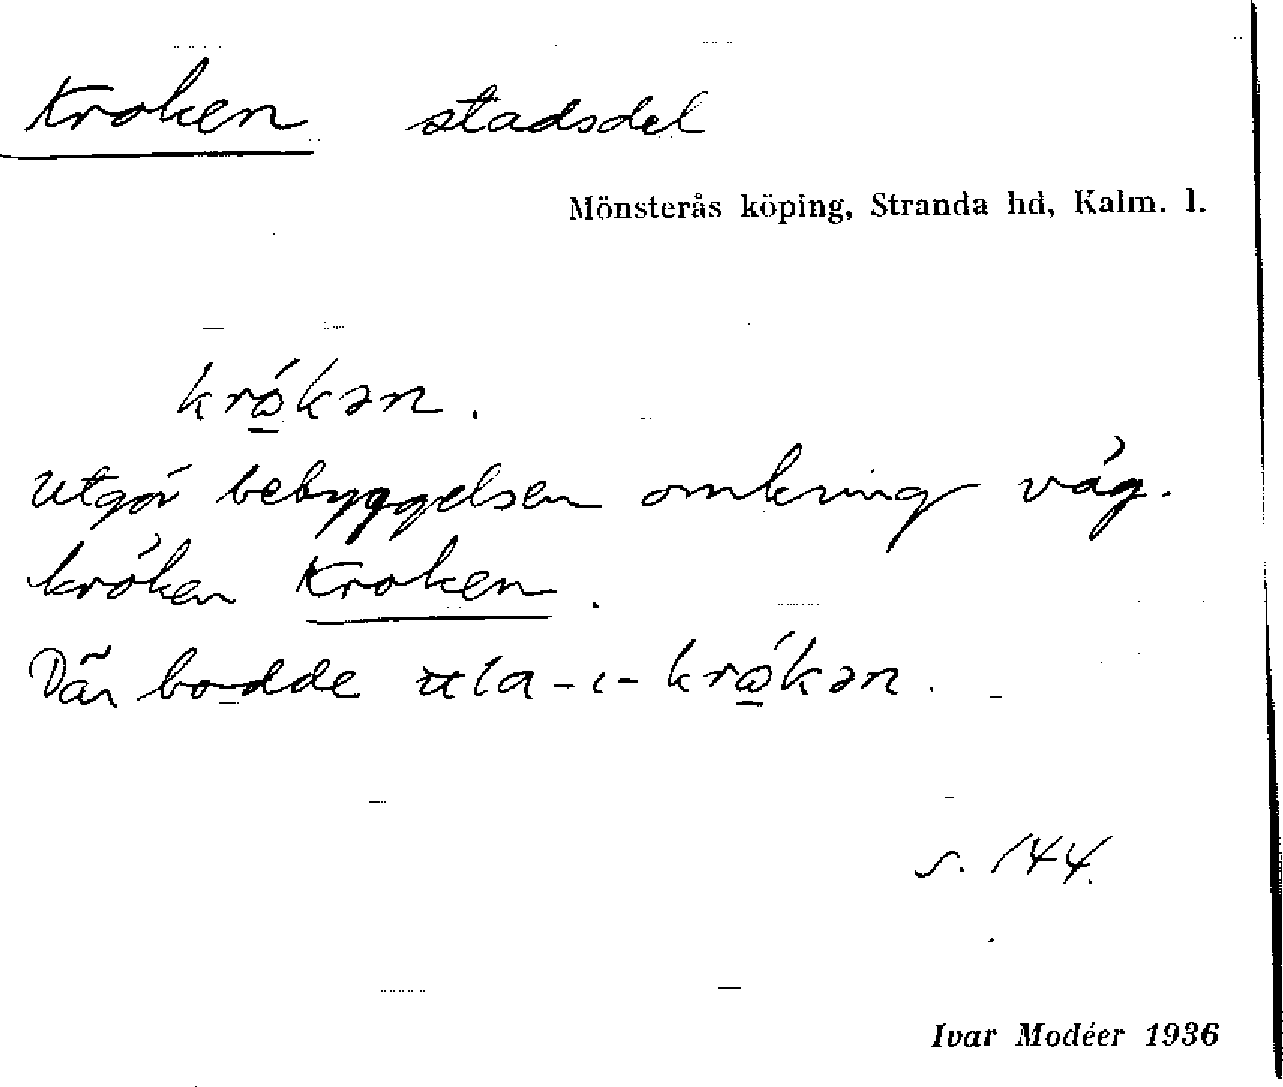 Kroken stadsdel
Mönsterås köping, Stranda hd, Kalm. l.
krókən.
utgör bebyggelsen omkring väg-
kröken Kroken.
Där bodde ula-ı-krókən.
s. 144.
Ivar Modéer 1936